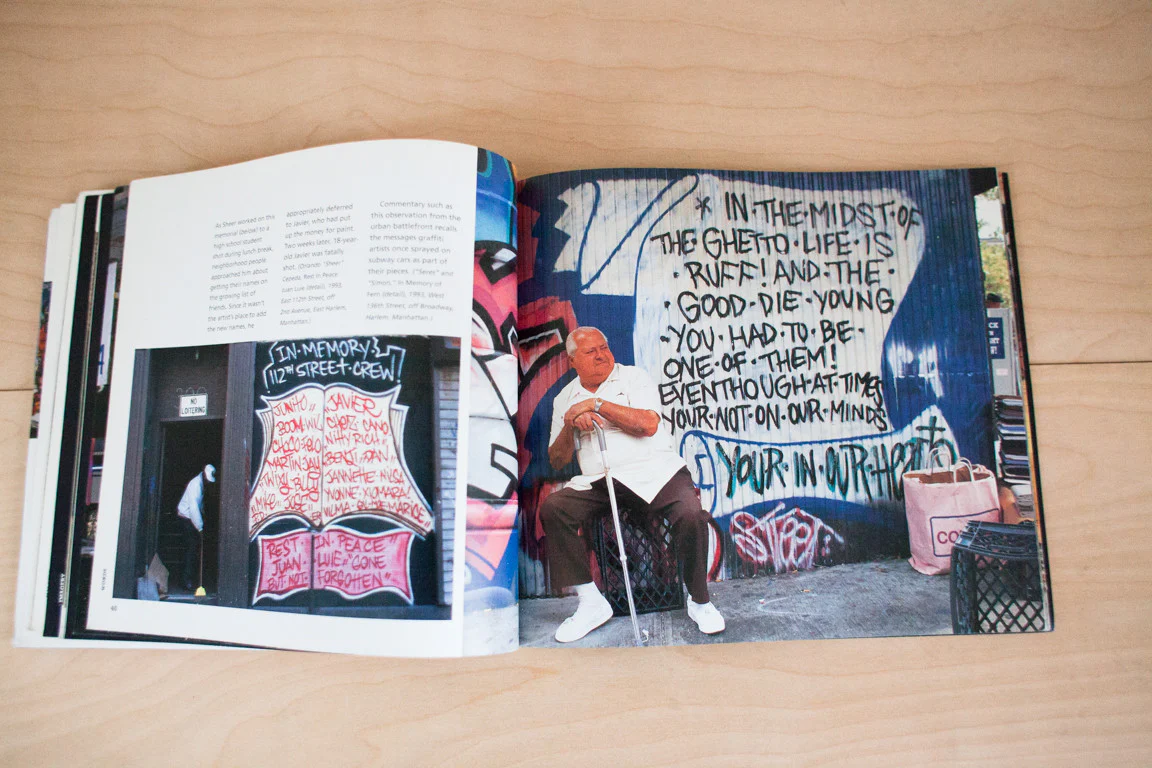 As Sheer worked on this
memorial (below) to a
high-school student
shot during lunch break,
neighborhood people
approached him about
getting their names on
the growing list of
friends. Since it wasn't
the artist's place to add
the new names, he
appropriately deferred
to Javier, who had put
up the money for paint.
Two weeks later, 18-year-
old Javier was fatally
shot. (Orlando "Sheer"
Rest in Peace
Juan Luie (detail), 1993,
East 112th Street, off
2nd Avenue, East Harlem,
Manhattan.)
Commentary such as
this observation from the
urban battlefront recalls
the messages graffiti
artists once sprayed on
subway cars as part of
their pieces. ("Serex" and
"Simon," In Memory of
(detail), 1993, West
136th Street, off Broadway,
Harlem, Manhattan.)
IN MEMORY
112TH STREET CREW!
NO
LOITERING
JUNITO
BOOM
CHOCO
MARTIN JAY
MIKE JOSE
JAVIER
CANO
NITTY RICH
BENJI
JANNETTE
IVONNE XIOMARA!
WILMA
REST IN PEACE
JUAN LUIE "GONE
BUT NOT FORGOHEN"
48
* IN·THE·MIDST·OF
THE·GHETTO·LIFE·IS
·RUFF! AND·THE·
·GOOD·DIE·YOUNG
·YOU·HAD·TO·BE·
ONE·OF·THEM!
EVENTHOUGH·AT·TIMES
YOUR·NOT·ON·OUR·MINDS
YOUR·IN·OUR·
STREET
CO